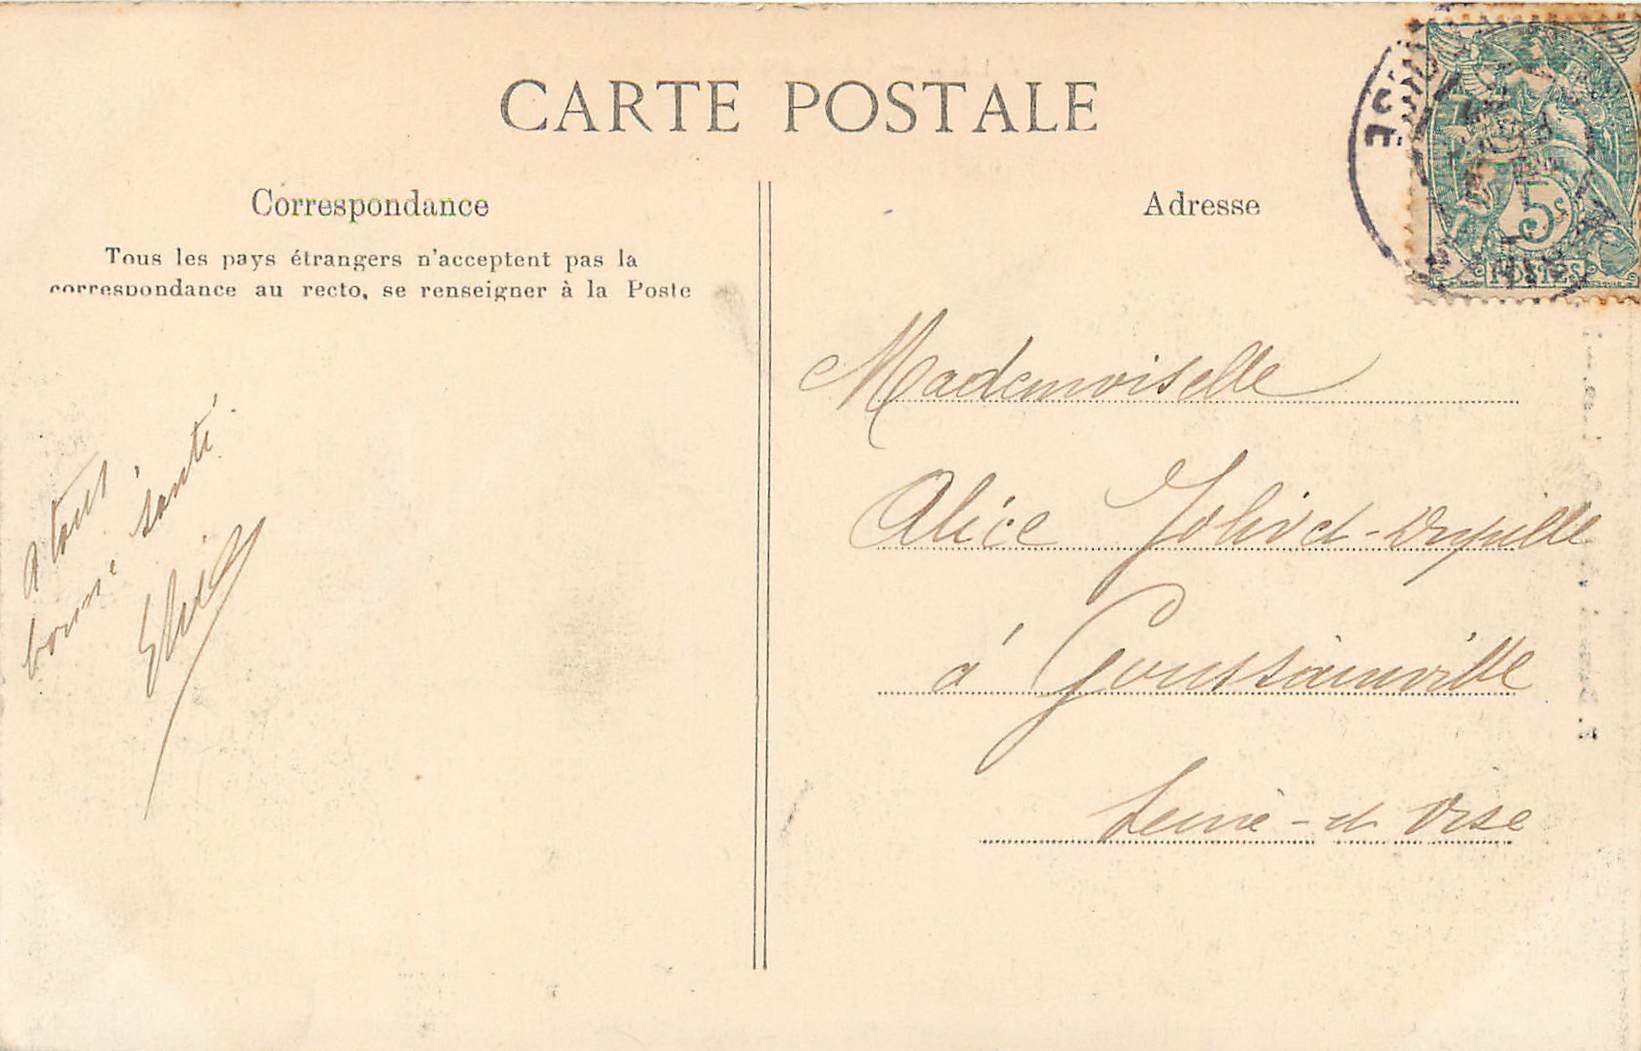 CARTE POSTALE
Correspondance
Tous les pays étrangers n'acceptent pas la
correspondance au recto, se renseigner à la Poste
Adresse
5c
POSTES
a tous
bonne santé
Mademoiselle
Alice Jolivet-Dupille
à Goussainville
Seine-et Oise